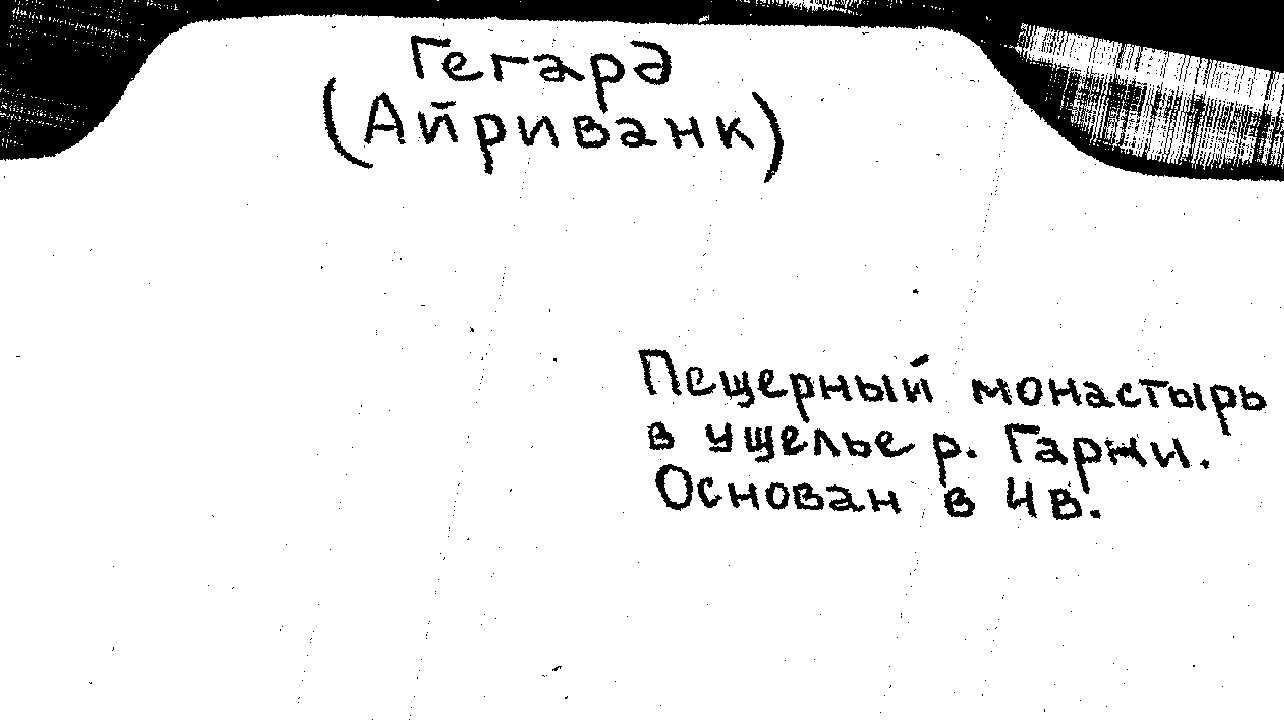 Гегард
(Айриванк)
Пещерный монастырь
в ущелье р. Гарни.
Основан в 4в.